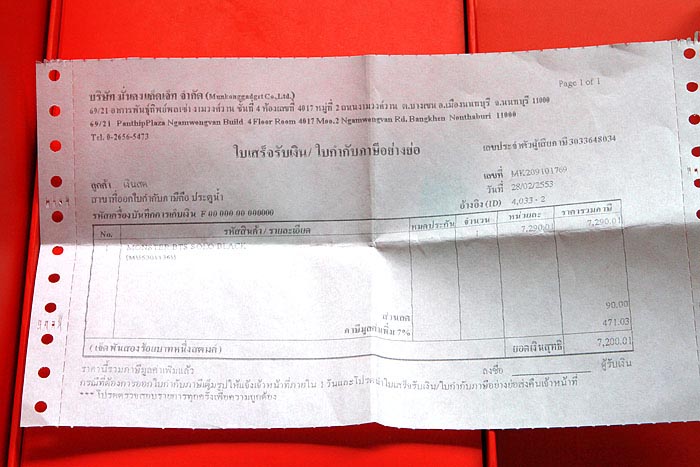 Page 1 of 1
บริษัท มั่นคงแก็ดเจ็ท จำกัด (MunkongGadget Co.,Ltd.)
69/21 อาคารพันธุ์ทิพย์พลาซ่า งามวงศ์วาน ชั้นที่ 4 ห้องเลขที่ 4017 หมู่ที่ 2 ถนนงามวงศ์วาน ต.บางเขน อ.เมืองนนทบุรี จ.นนทบุรี 11000
69/21 PanthipPlaza Ngamwongvan Build. 4 Floor Room 4017 Moo.2 Ngamwongvan Rd, Bangkhen Nonthaburi 11000
Tel. 0-2656-5473
ใบเสร็จรับเงิน/ ใบกำกับภาษีอย่างย่อ
เลขประจำตัวผู้เสียภาษี 3033648034
ลูกค้า เงินสด
เลขที่ ME209101769
วันที่ 28/02/2553
สาขาที่ออกใบกำกับภาษีคือ ประตูน้ำ
อ้างอิง (ID) 4,033 - 2
รหัสเครื่องบันทึกการเก็บเงิน F 00 000 00 000000
No. รหัสสินค้า / รายละเอียด หมดประกัน จำนวน หน่วยละ ราคารวมภาษี
MONSTER BTS SOLO BLACK 7,290.01 7,290.01
ส่วนลด 90.00
ภาษีมูลค่าเพิ่ม 7% 471.03
(เจ็ดพันสองร้อยบาทหนึ่งสตางค์) ยอดเงินสุทธิ 7,200.01
ราคานี้รวมภาษีมูลค่าเพิ่มแล้ว
ลงชื่อ ผู้รับเงิน
กรณีที่ต้องการออกใบกำกับภาษีเต็มรูปให้แจ้งเจ้าหน้าที่ภายใน 1 วันและโปรดนำใบเสร็จรับเงิน/ใบกำกับภาษีอย่างย่อส่งคืนเจ้าหน้าที่
*** โปรดตรวจสอบรายการทุกครั้งเพื่อความถูกต้อง